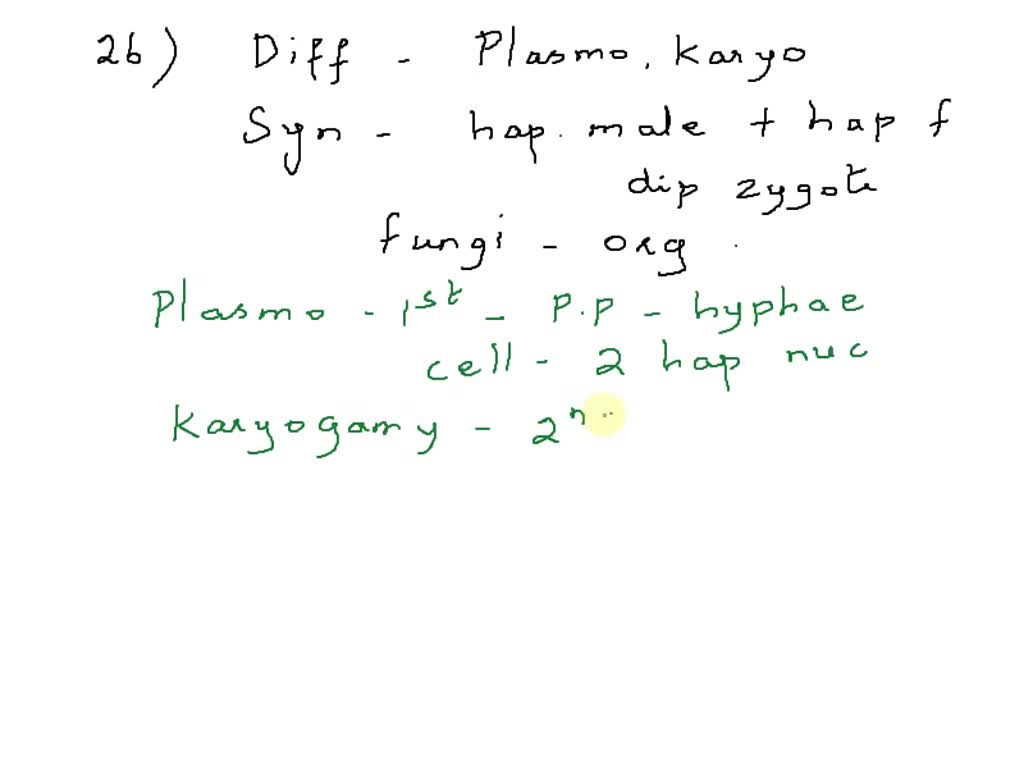 26) Diff - Plasmo, Karyo
Syn - hap. male + hap f
dip zygote
fungi - org.
Plasmo - 1st - P.P - hyphae
cell - 2 hap nuc
Karyogamy - 2n